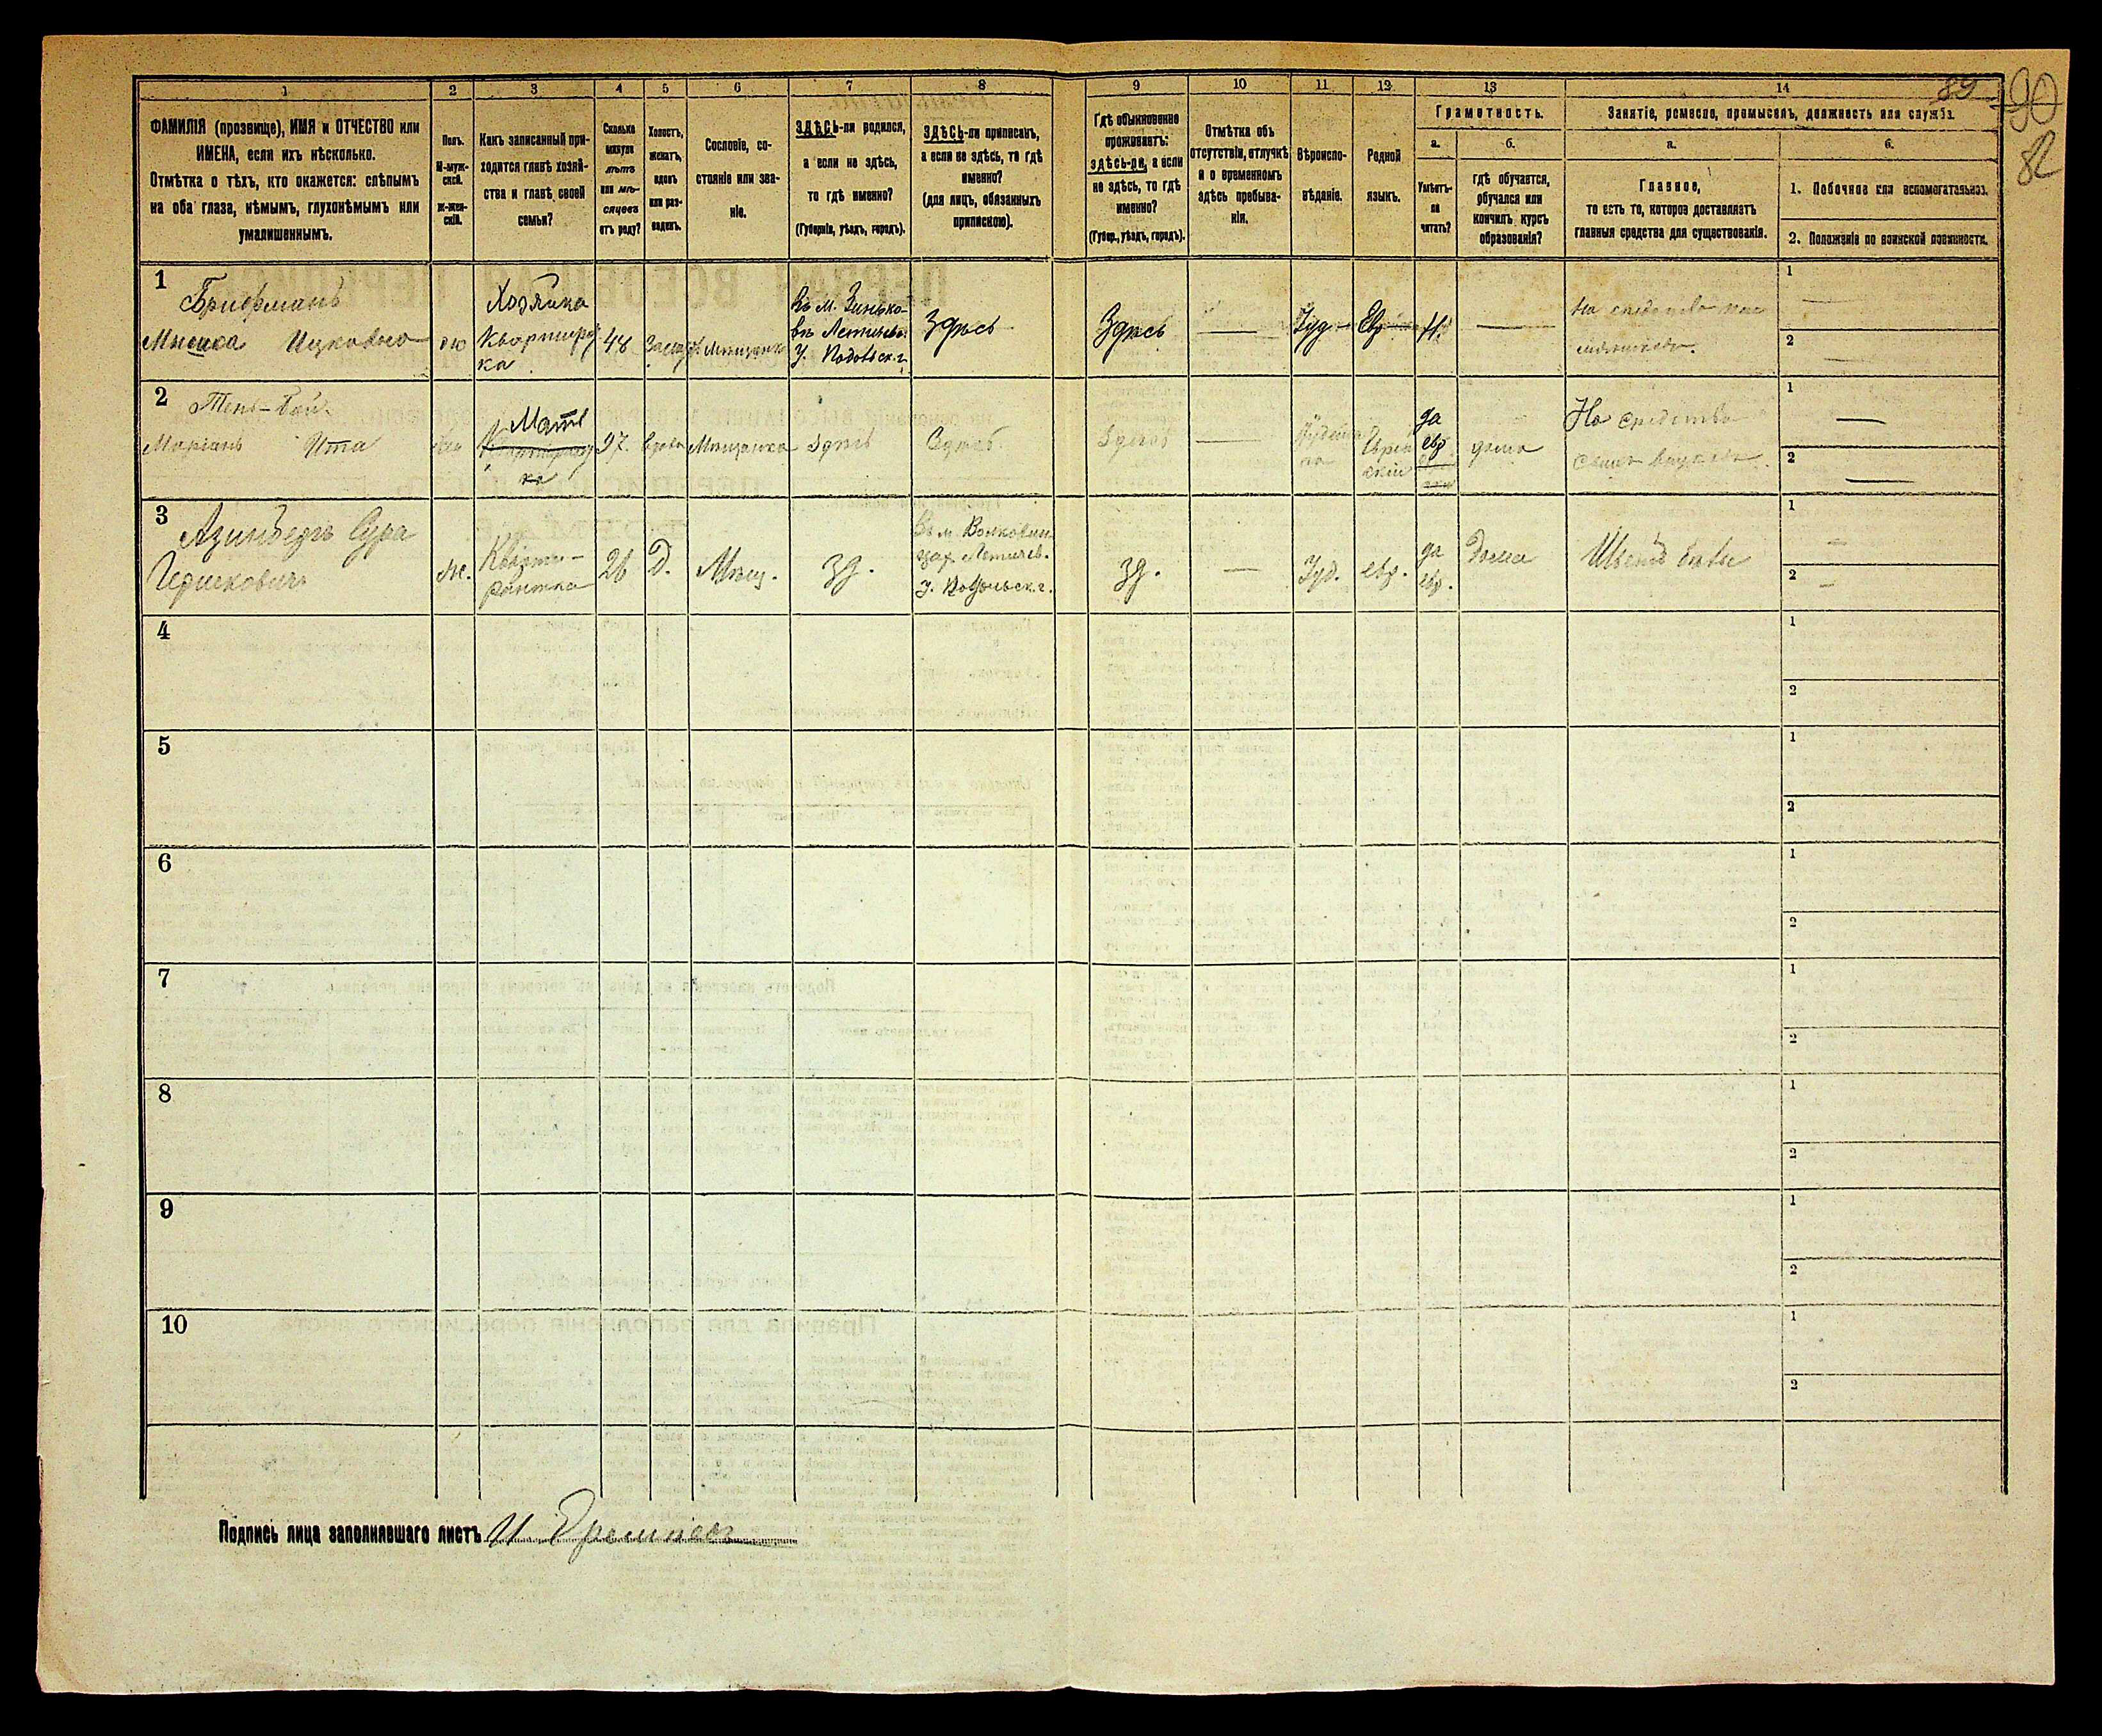 89
90
82
1
2
3
4
5
6
7
8
9
10
11
12
13
14
ФАМИЛІЯ (прозвище), ИМЯ и ОТЧЕСТВО или
ИМЕНА, если ихъ нѣсколько.
Отмѣтка о тѣхъ, кто окажется: слѣпымъ
на оба глаза, нѣмымъ, глухонѣмымъ или
умалишеннымъ.
Полъ.
М-муж-
ской.
ж-жен-
скій.
Какъ записанный при-
ходится главѣ хозяй-
ства и главѣ своей
семьи?
Сколько
минуло
лѣтъ
или мѣ-
сяцевъ
отъ роду?
Холостъ,
женатъ,
вдовъ
или раз-
веденъ.
Сословіе, со-
стояніе или зва-
ніе.
ЗДѢСЬ-ли родился,
а если не здѣсь,
то гдѣ именно?
(Губернія, уѣздъ, городъ).
ЗДѢСЬ-ли приписанъ,
а если не здѣсь, то гдѣ
именно?
(для лицъ, обязанныхъ
припискою).
Гдѣ обыкновенно
проживаетъ:
здѣсь-ли, а если
не здѣсь, то гдѣ
именно?
(Губер., уѣздъ, городъ).
Отмѣтка объ
отсутствіи, отлучкѣ
и о временномъ
здѣсь пребыва-
ніи.
Вѣроиспо-
вѣданіе.
Родной
языкъ.
Грамотность.
а.
Умѣетъ-
ли
читать?
б.
гдѣ обучается,
обучался или
кончилъ курсъ
образованія?
Занятіе, ремесло, промыселъ, должность или служба.
а.
Главное,
то есть то, которое доставляетъ
главныя средства для существованія.
б.
1. Побочное или вспомогательное.
2. Положеніе по воинской повинности.
1
Хозяйка
Квартир
ка
48
Въ м. Зинько-
вѣ Летичев.
У. Подольск. г.
Здѣсь
Здѣсь
Іуд
Евр
1
2
2
Ита
Мать
97.
вдова
Мѣщанка
Здѣсь
Здѣсь
Здѣсь
Іудейс
Еврей
скій
да
евр
дома
На средства
1
2
3
Сура
ж.
Кварти-
рантка
26
Д.
Мѣщ.
Зд.
Въ м. Волковин
цах Летичев.
У. Подольск. г.
Зд.
Іуд.
евр.
да
евр.
Дома
1
2
4
1
2
5
1
2
6
1
2
7
1
2
8
1
2
9
1
2
10
1
2
Подпись лица заполнявшаго листъ